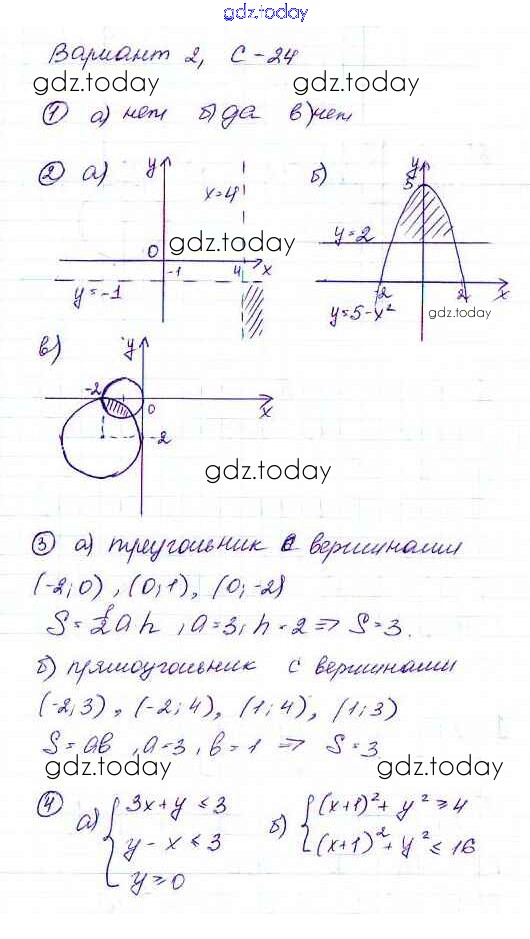 gdz.today
Вариант 2, С-24
gdz.today gdz.today
① а) нет б) да в) нет
② а) y x=4 0 -1 4 x y=-1
б) y 5 y=2 -2 2 x y=5-x²
gdz.today
gdz.today
в) y -2 0 x -2
gdz.today
③ а) треугольник с вершинами
(-2;0), (0;1), (0;-2)
S=½ah, a=3, h=2 ⇒ S=3.
б) прямоугольник с вершинами
(-2;3), (-2;4), (1;4), (1;3)
S=ab, a=3, b=1 ⇒ S=3
gdz.today gdz.today
④ а) { 3x+y ≤ 3
y-x ≤ 3
y ≥ 0
б) { (x+1)²+y² ≥ 4
(x+1)²+y² ≤ 16
gdz.today gdz.today